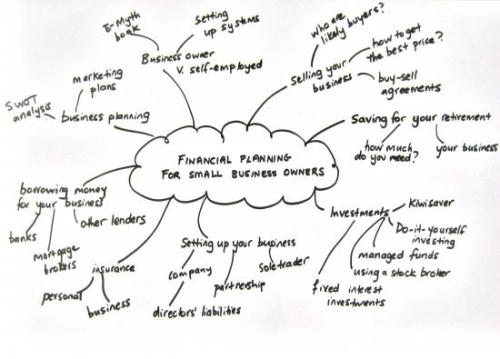 E-Myth
book
Setting
up systems
Business owner
v. self-employed
who are
likely buyers?
how to get
the best price?
Selling your
business
buy-sell
agreements
marketing
plans
SWOT
analysis
business planning
Saving for your retirement
how much
do you need?
your business
FINANCIAL PLANNING
FOR SMALL BUSINESS OWNERS
borrowing money
for your business
banks
mortgage
brokers
other lenders
insurance
personal
business
Setting up your business
company
partnership
Soletrader
directors' liabilities
Investments
Kiwisaver
Do-it-yourself
investing
managed funds
using a stock broker
fixed interest
investments